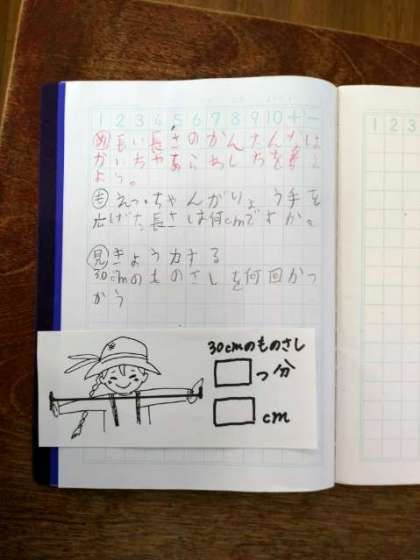 1 2 3 4 5 6 7 8 9 10 + −
め 長い長さのかんたんなは
かいちゃあらわしちを考え
よう。
も えっちゃんがりょう手を
広げた長さは何cmですか。
見 きょう力する
30cmのものさしを何回かつ
かう
30cmのものさし
つ分
cm
1 2 3